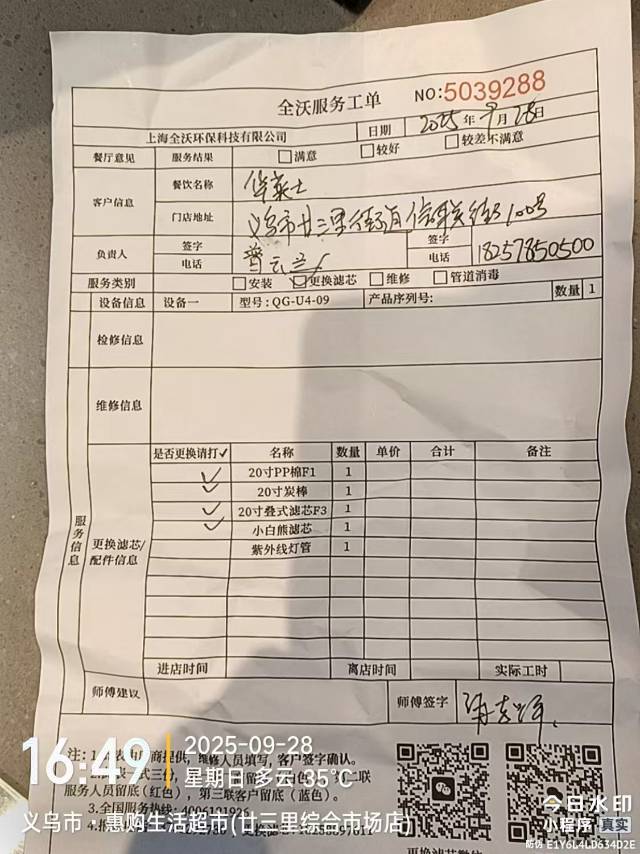 全沃服务工单 NO:5039288
上海全沃环保科技有限公司 日期 2025年9月28日
餐厅意见 服务结果 满意 较好 较差不满意
客户信息 餐饮名称 华莱士
门店地址 义乌市廿三里街道 街100号
负责人 签字 电话 曾云兰 签字 电话 18257850500
服务类别 安装 更换滤芯 维修 管道消毒
设备信息 设备一 型号:QG-U4-09 产品序列号: 数量 1
检修信息
维修信息
服务信息
更换滤芯/配件信息
是否更换请打✓ 名称 数量 单价 合计 备注
✓ 20寸PP棉F1 1
✓ 20寸炭棒 1
✓ 20寸叠式滤芯F3 1
✓ 小白熊滤芯 1
紫外线灯管 1
进店时间 离店时间 实际工时
师傅建议 师傅签字
注:1. 商提供,维修人员填写,客户签字确认。
第二联
服务人员留底(红色),第三联客户留底(蓝色)。
3.全国服务热线:
16:49 2025-09-28
星期日 多云 35℃
义乌市·惠购生活超市(廿三里综合市场店)
今日水印
小程序 真实
防伪 E1Y6L4LD634D2E